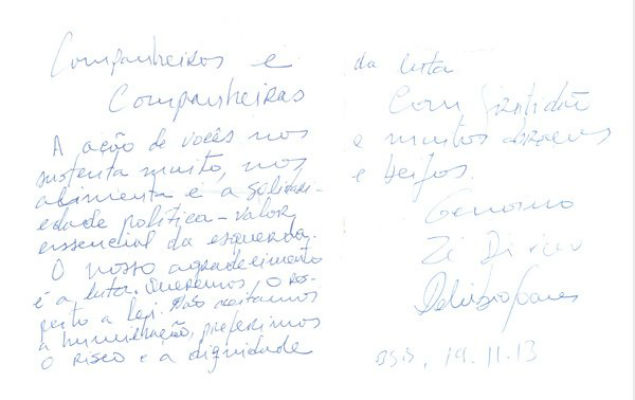 Companheiros e
Companheiras
A ação de vocês nos
sustenta muito, nos
alimenta é a solidari-
edade política - valor
essencial da esquerda.
O nosso agradecimento
é a luta. Queremos, o res-
peito a lei. Não aceitamos
a humilhação, preferimos
o risco e a dignidade
da luta
Com gratidão
e muitos abraços
e beijos.
Genoino
Zé Dirceu
Delúbio Soares
BSB, 19.11.13